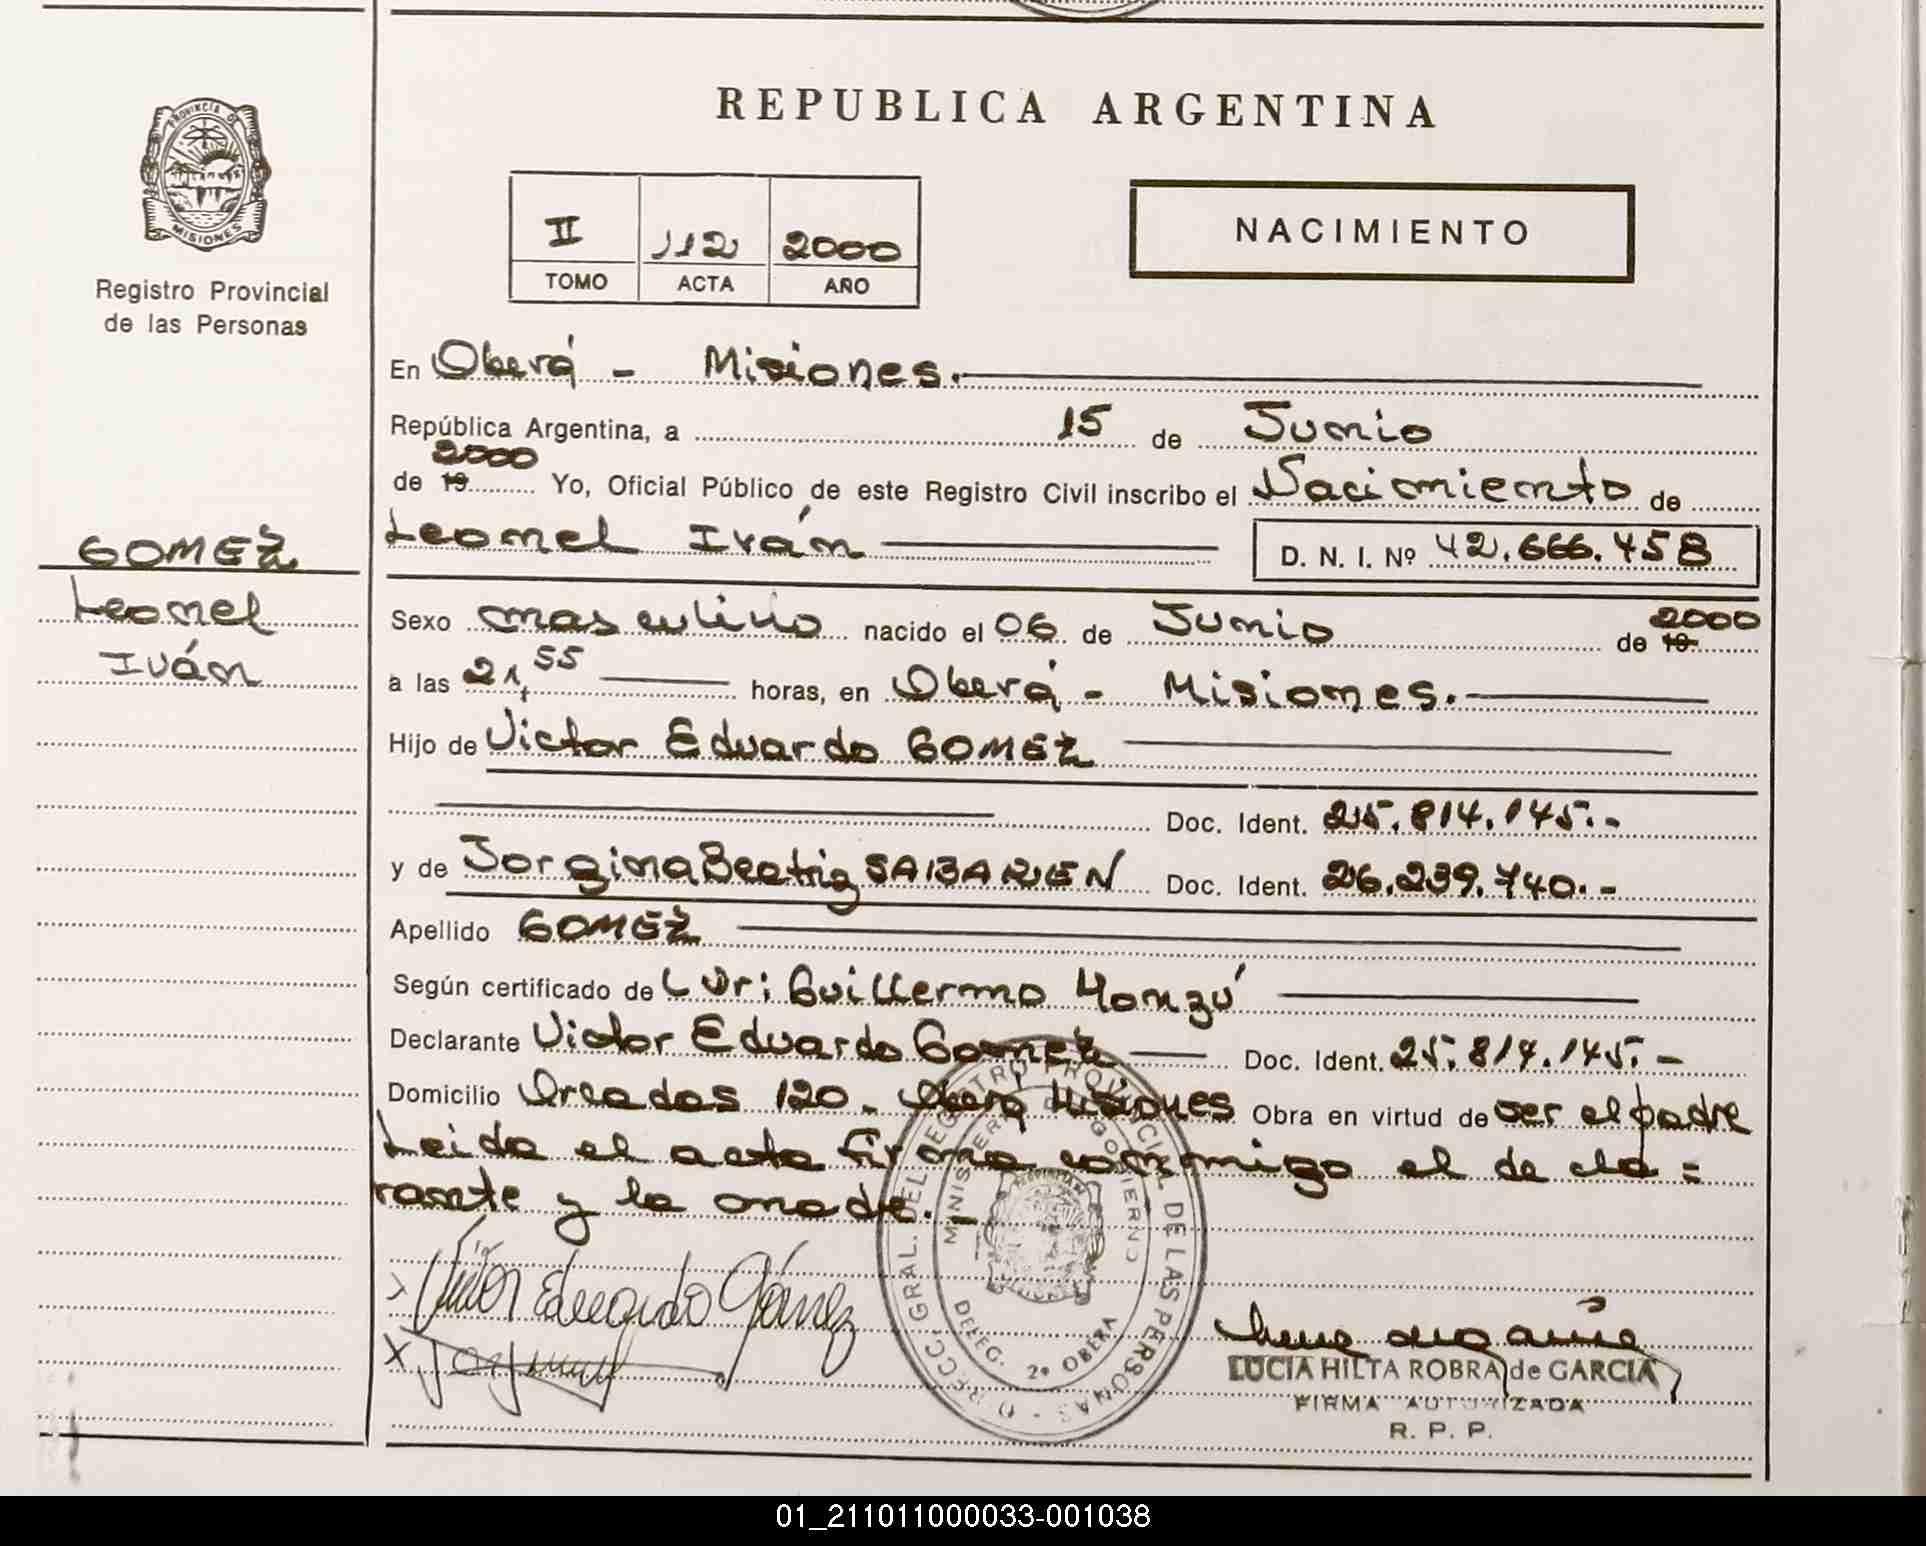 REPUBLICA ARGENTINA
PROVINCIA DE
MISIONES
Registro Provincial
de las Personas
II 112 2000
TOMO ACTA AÑO
NACIMIENTO
En Oberá - Misiones.
República Argentina, a 15 de Junio
2000
de 19 Yo, Oficial Público de este Registro Civil inscribo el Nacimiento de
Leonel Iván D. N. I. Nº 42.666.458
GOMEZ
Leonel
Iván
Sexo masculino nacido el 06 de Junio de 19 2000
a las 21,55 horas, en Oberá - Misiones.
Hijo de Victor Eduardo GOMEZ
Doc. Ident. 25.814.145.-
y de Jorgina Beatriz SABAREN Doc. Ident. 26.239.740.-
Apellido GOMEZ
Según certificado de Guillermo Monzú
Declarante Victor Eduardo Gomez Doc. Ident. 25.814.145.-
Domicilio 120 - Oberá Misiones Obra en virtud de ser el padre
Leida el acta firma conmigo el decla=
rante y la madre.-
Victor Eduardo Gómez
X
DIRECC. GRAL. DEL REGISTRO PROVINCIAL DE LAS PERSONAS
MINISTERIO DE GOBIERNO
DELEG. 2º OBERA
LUCIA HILTA ROBRA de GARCIA
FIRMA AUTORIZADA
R. P. P.
01_211011000033-001038